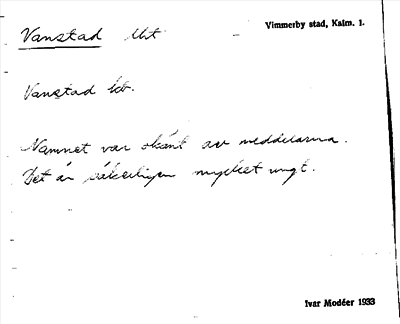 Vanstad Uht
Vimmerby stad, Kalm. l.
Vanstad kv.
Namnet var okänt av meddelarna.
Det är säkerligen mycket ungt.
Ivar Modéer 1933